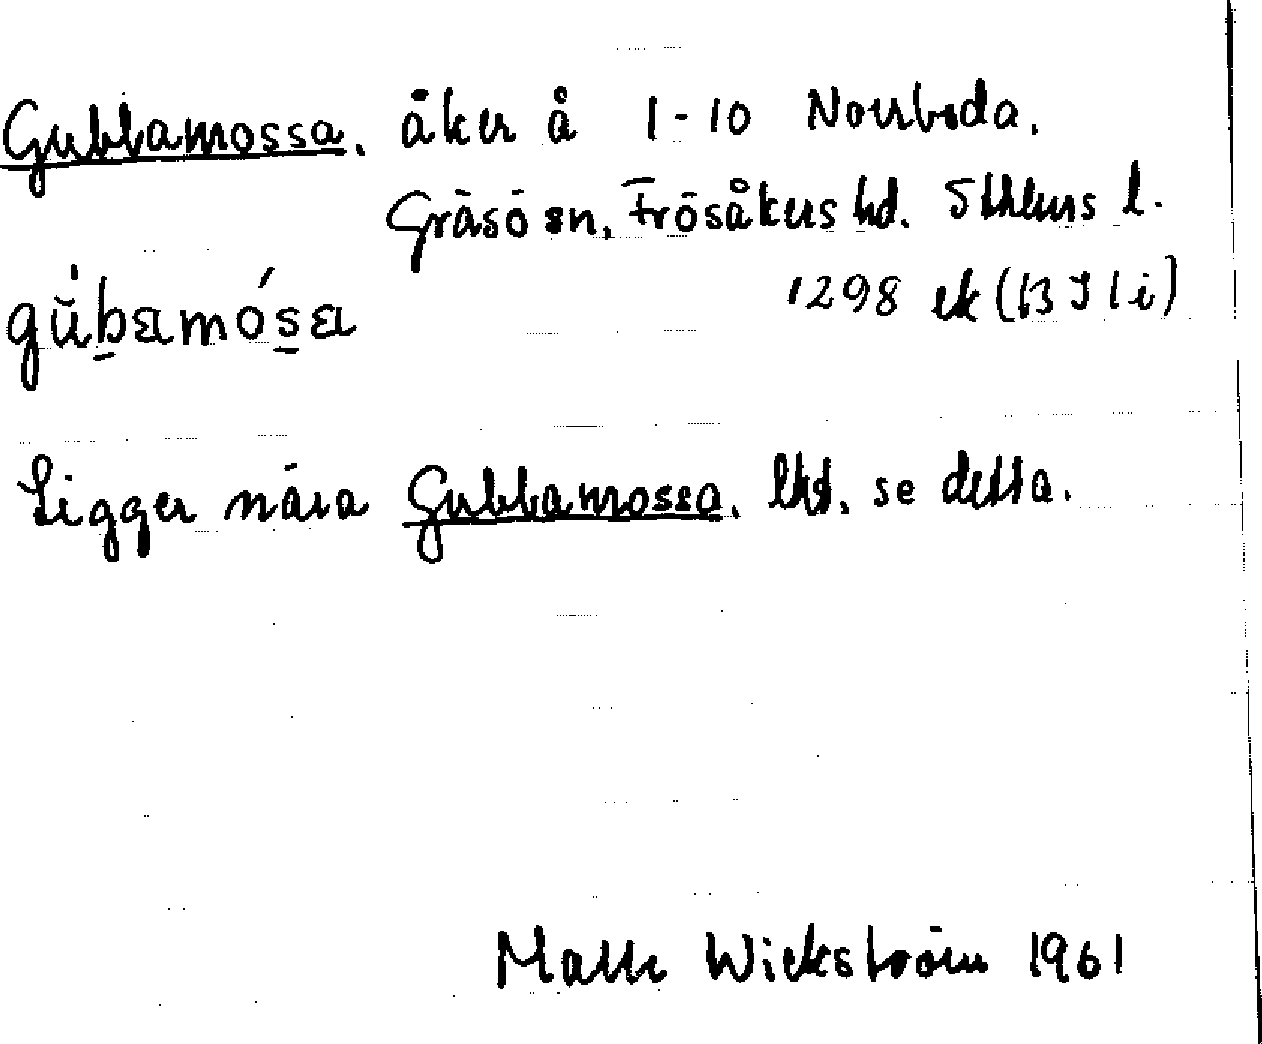 Gubbamossa. åker å 1-10 Norrboda.
Gräsö sn. Frösåkers hd. Sthlms l.
1298 ek (13 I 1 i)
gu̇̆b̠amósa
Ligger nära Gubbamossa. lhd. se detta.
Wickström 1961